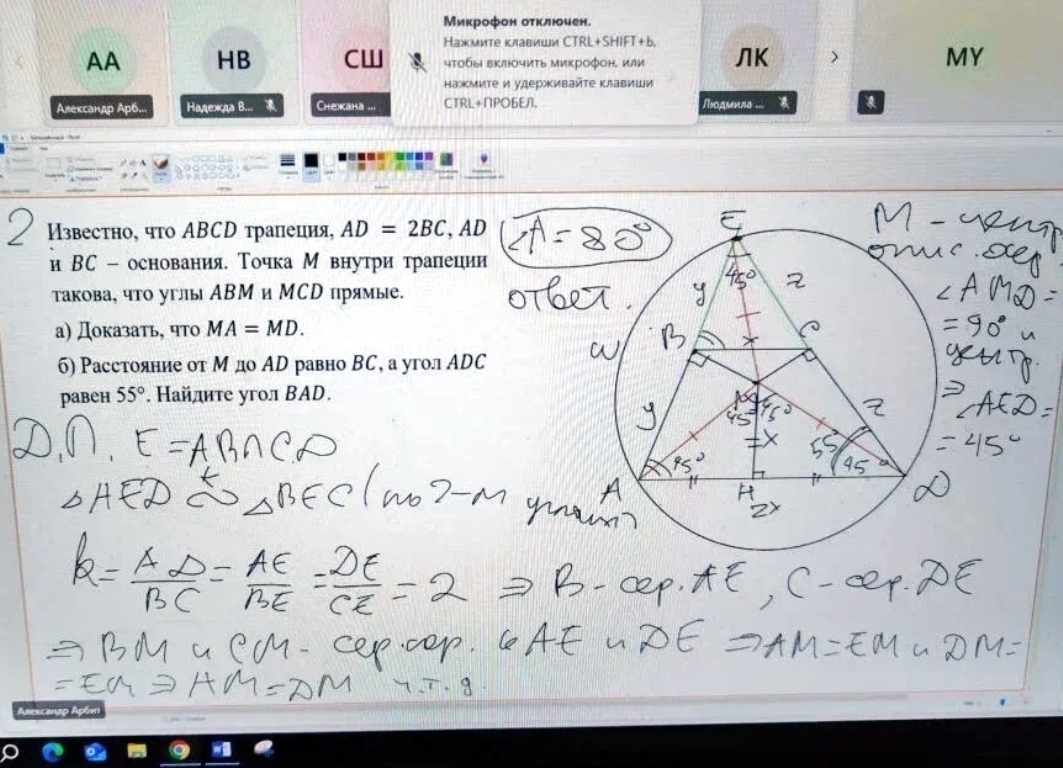 AA
НВ
СШ
ЛК
MY
Александр Арб...
Надежда В...
Снежана ...
Людмила ...
Микрофон отключен.
Нажмите клавиши CTRL+SHIFT+Ь,
чтобы включить микрофон, или
нажмите и удерживайте клавиши
CTRL+ПРОБЕЛ.
2
Известно, что ABCD трапеция, AD = 2BC, AD
и BC – основания. Точка M внутри трапеции
такова, что углы ABM и MCD прямые.
а) Доказать, что MA = MD.
б) Расстояние от M до AD равно BC, а угол ADC
равен 55°. Найдите угол BAD.
∠A = 80°
ответ.
M - центр
опис. окр.
∠AMD =
= 90° и
центр.
⇒
∠AED =
= 45°
E
45°
y
z
B
C
ω
M
y
z
45°
45°
x
55°
45°
45°
A
H
D
2x
Д.П. E = AB∩CD
△AED ~ △BEC (по 2-м углам)
k
k = AD/BC = AE/BE = DE/CE = 2 ⇒ B - сер. AE, C - сер. DE
⇒ BM и CM - сер. пер. к AE и DE ⇒ AM = EM и DM =
= EM ⇒ AM = DM ч.т.д.
Александр Арбит